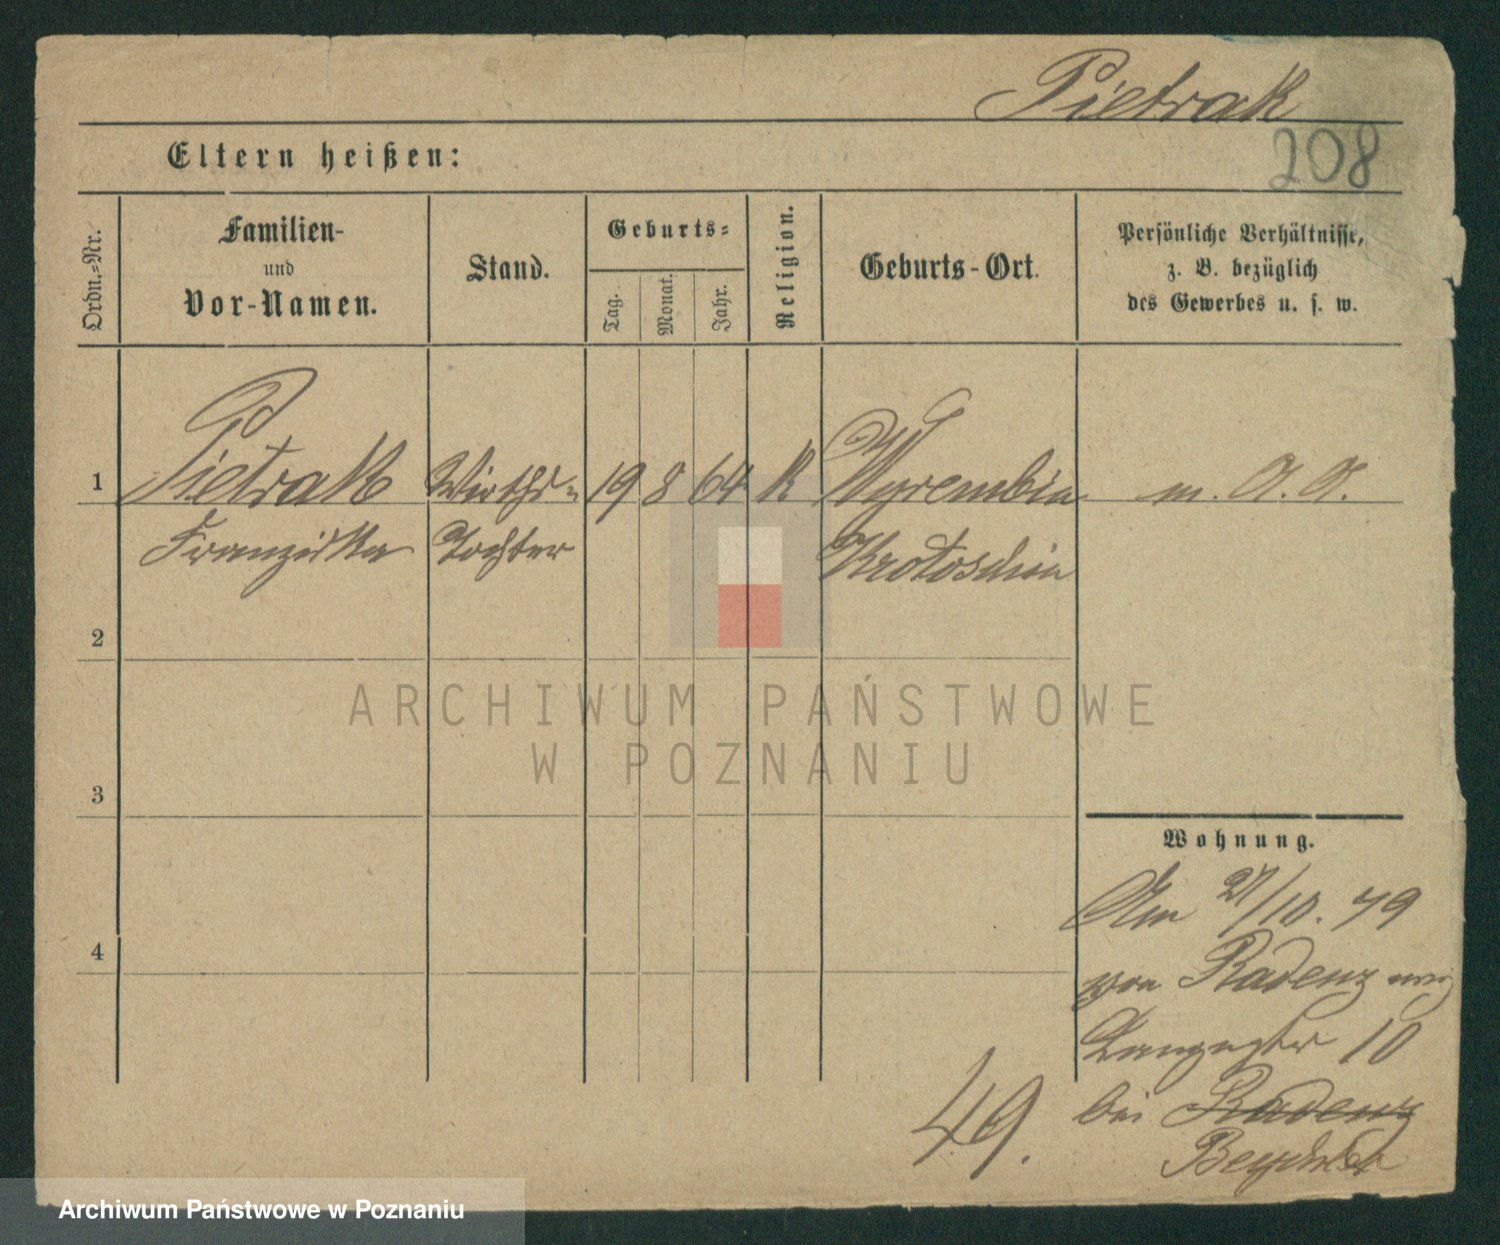 Pietrak
208
Eltern heißen:
Ordn.=Nr.
Familien-
und
Vor-Namen.
Stand.
Geburts=
Tag.
Monat.
Jahr.
Religion.
Geburts-Ort.
Persönliche Verhältnisse,
z. B. bezüglich
des Gewerbes u. s. w.
1 Pietrak Wirths- 19 8 64 K Wyrembin m. A. A.
Franziska Tochter Krotoschin
2
3
4
Wohnung.
Am 21/10. 79
von Radenz
10
bei Radenz
49.
ARCHIWUM PAŃSTWOWE
W POZNANIU
Archiwum Państwowe w Poznaniu